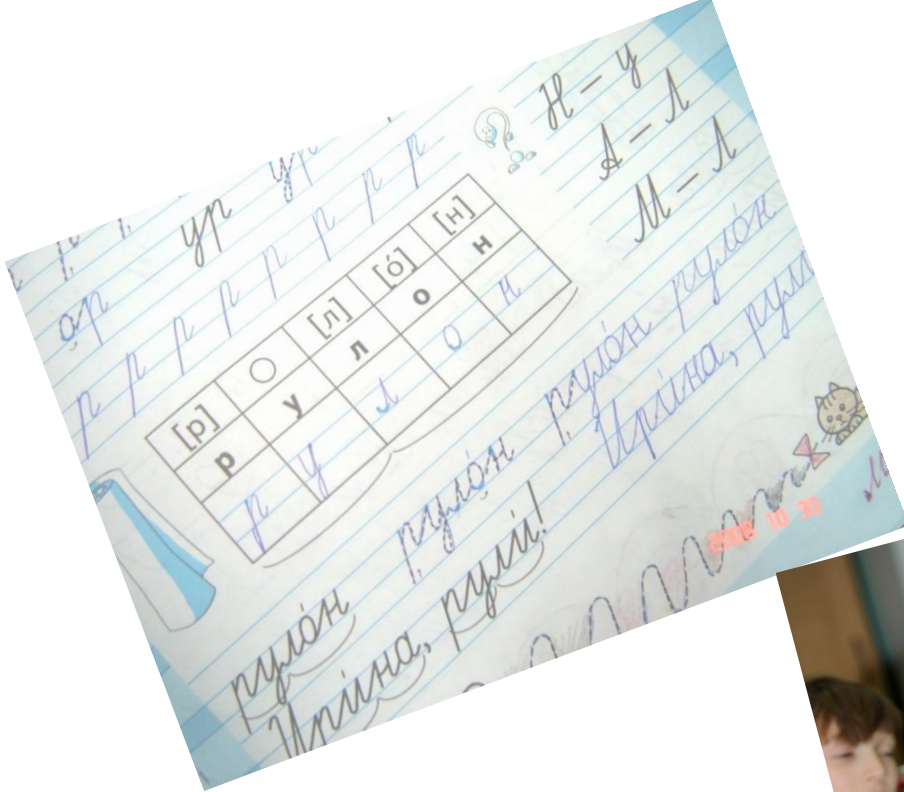 ор ур ур
р р р р р р р р
Н – у
А – Л
М – Л
[р] ○ [л] [о́] [н]
р у л о н
р у л о н
руло́н руло́н руло́н руло́н
Ири́на, рули́! Ири́на, рули
2008 10 30